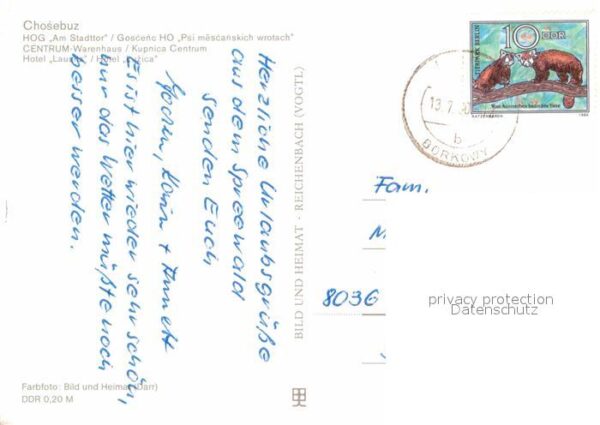 Chośebuz
HOG „Am Stadttor" / Gosćeńc HO „Psi měsćańskich wrotach"
CENTRUM-Warenhaus / Kupnica Centrum
Hotel „Lausitz" / Hotel „Łužica"
Herzliche Urlaubsgrüße
aus dem Spreewald
senden Euch
Jochen, Karin + Annett
Es ist hier wieder sehr schön,
nur das Wetter müßte noch
besser werden.
Farbfoto: Bild und Heimat (Darr)
DDR 0,20 M
BILD UND HEIMAT - REICHENBACH (VOGTL)
10 DDR
TIERPARK BERLIN
Vom Aussterben bedrohte Tiere
KATZENBÄREN
13.7.
b
BORKOWY
Fam.
M
8036
privacy protection
Datenschutz